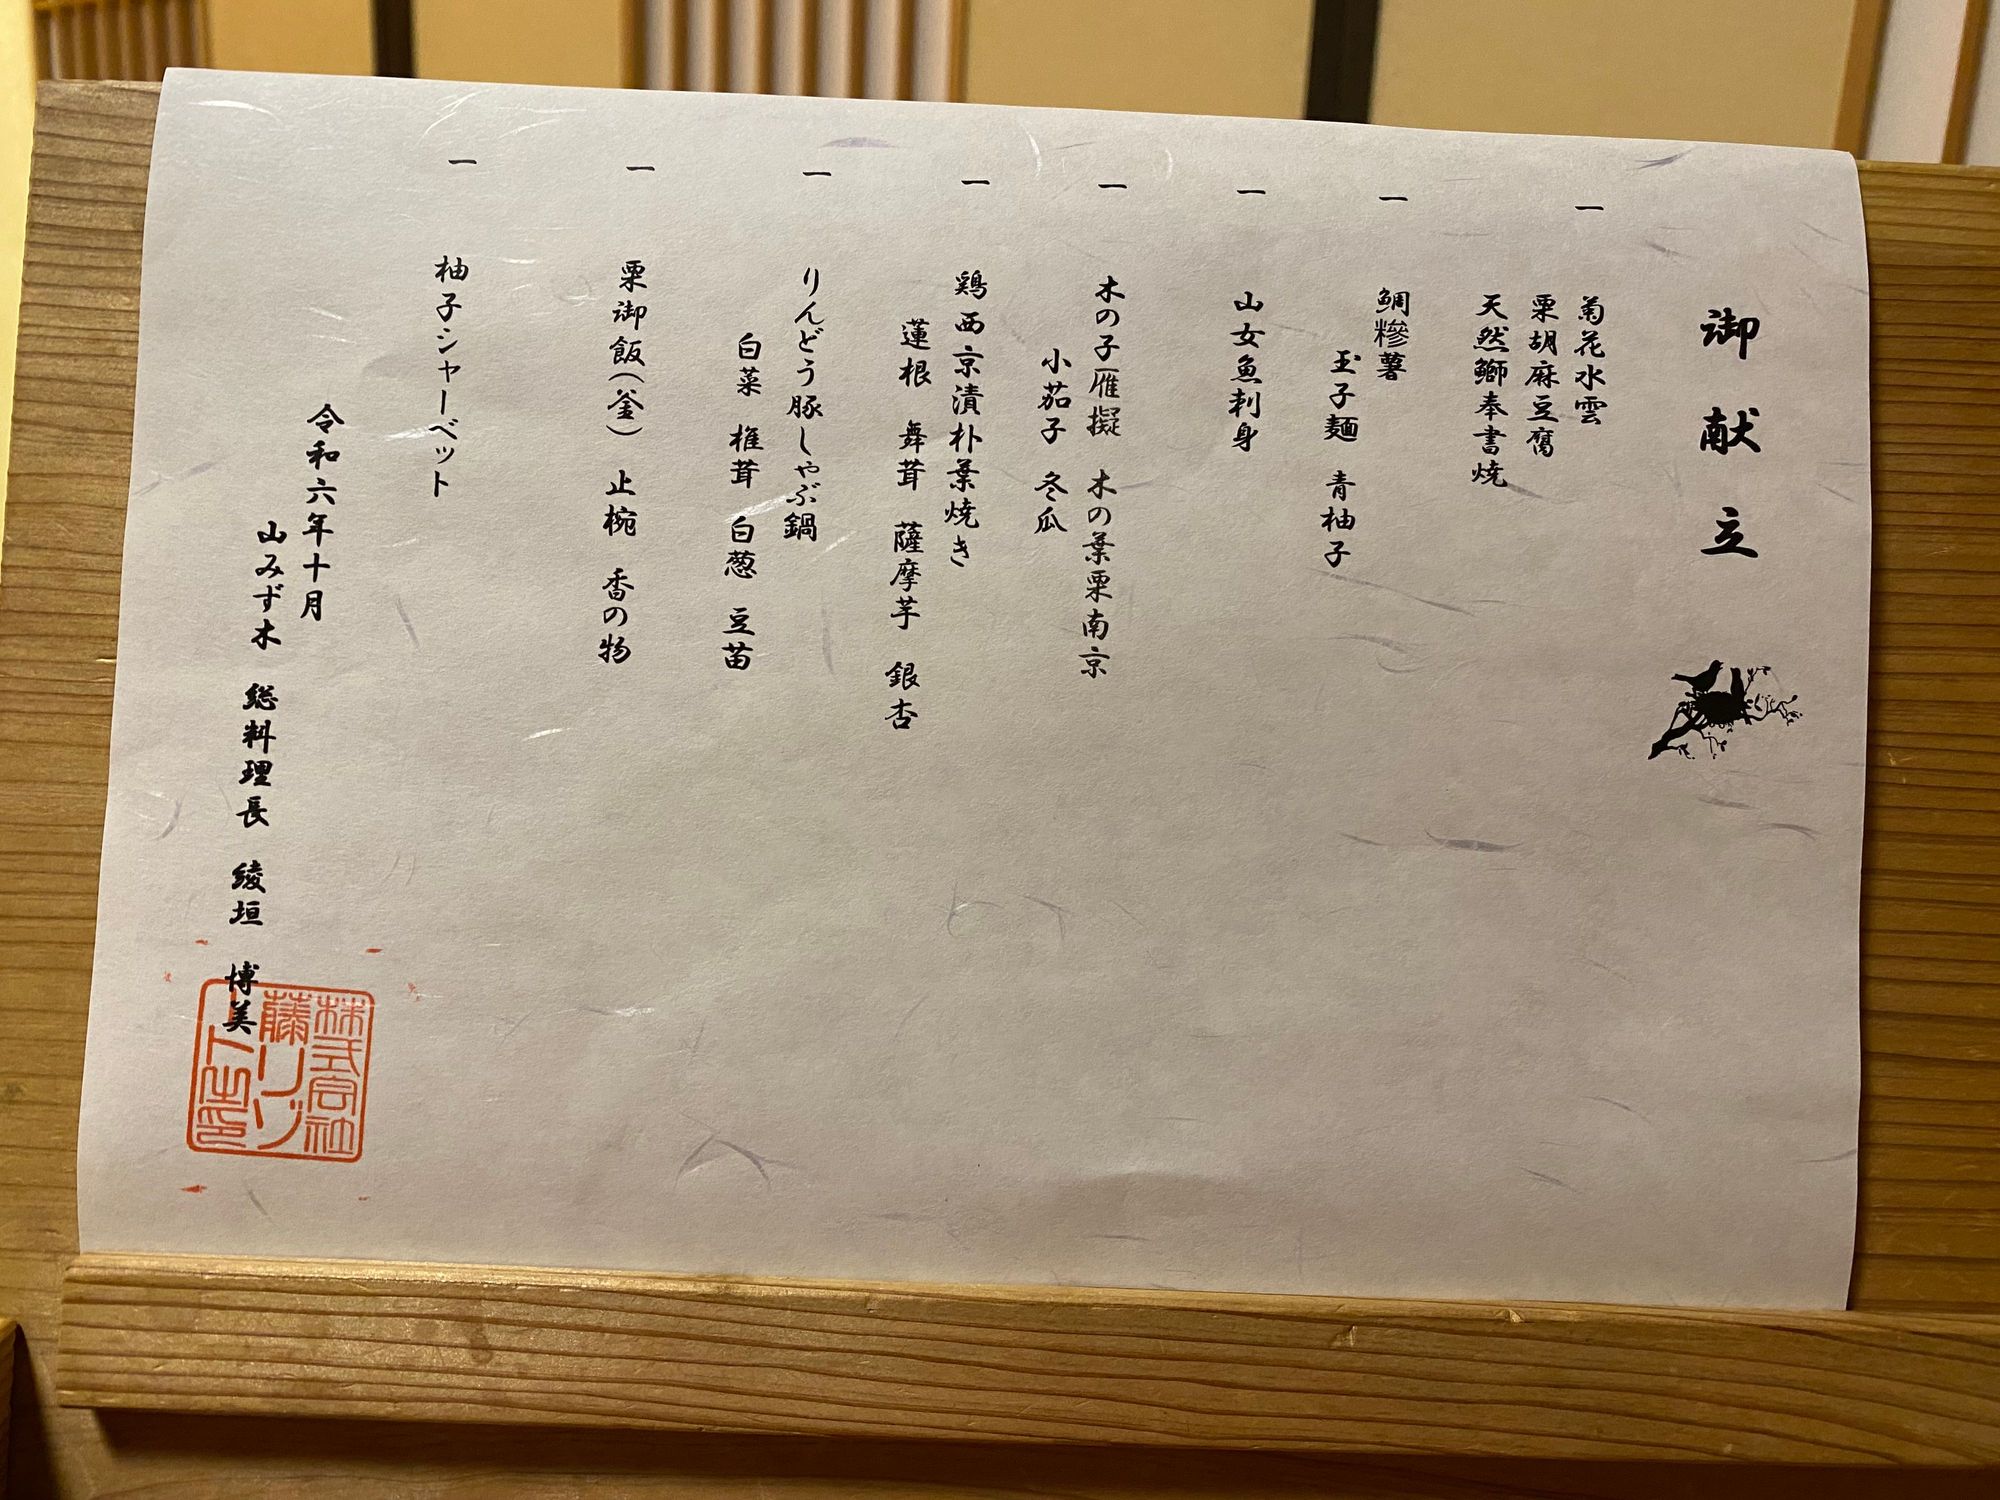 御献立
一
菊花水雲
栗胡麻豆腐
天然鰤奉書焼
一
鯛糝薯
玉子麺 青柚子
一
山女魚刺身
一
木の子雁擬 木の葉栗南京
小茄子 冬瓜
一
鶏西京漬朴葉焼き
蓮根 舞茸 薩摩芋 銀杏
一
りんどう豚しゃぶ鍋
白菜 椎茸 白葱 豆苗
一
栗御飯(釜) 止椀 香の物
一
柚子シャーベット
令和六年十月
山みず木 総料理長 綾垣 博美
株式会社
藤リゾ
ート之印